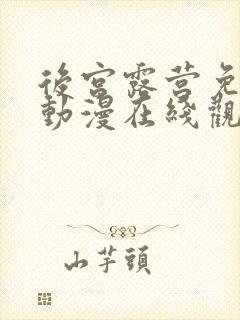 後宮露营免
動漫在綫觀
山芋頭